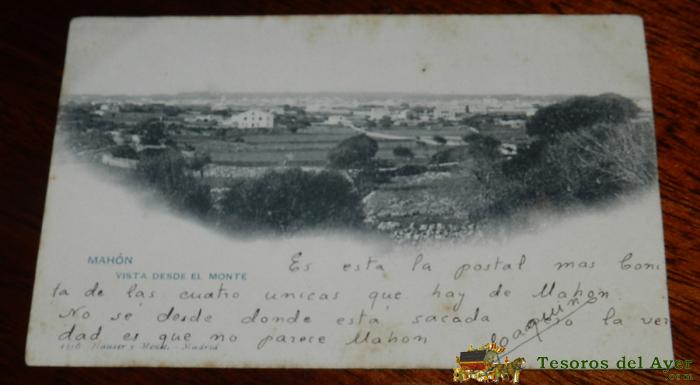 MAHÓN
VISTA DESDE EL MONTE
Es esta la postal mas boni
ta de las cuatro unicas que hay de Mahón.
No sé desde donde está sacada pero la ver
dad es que no parece Mahon
Joaquin
1216 Hauser y Menet. - Madrid
Tesoros del Ayer
www.tesorosdelayer.com